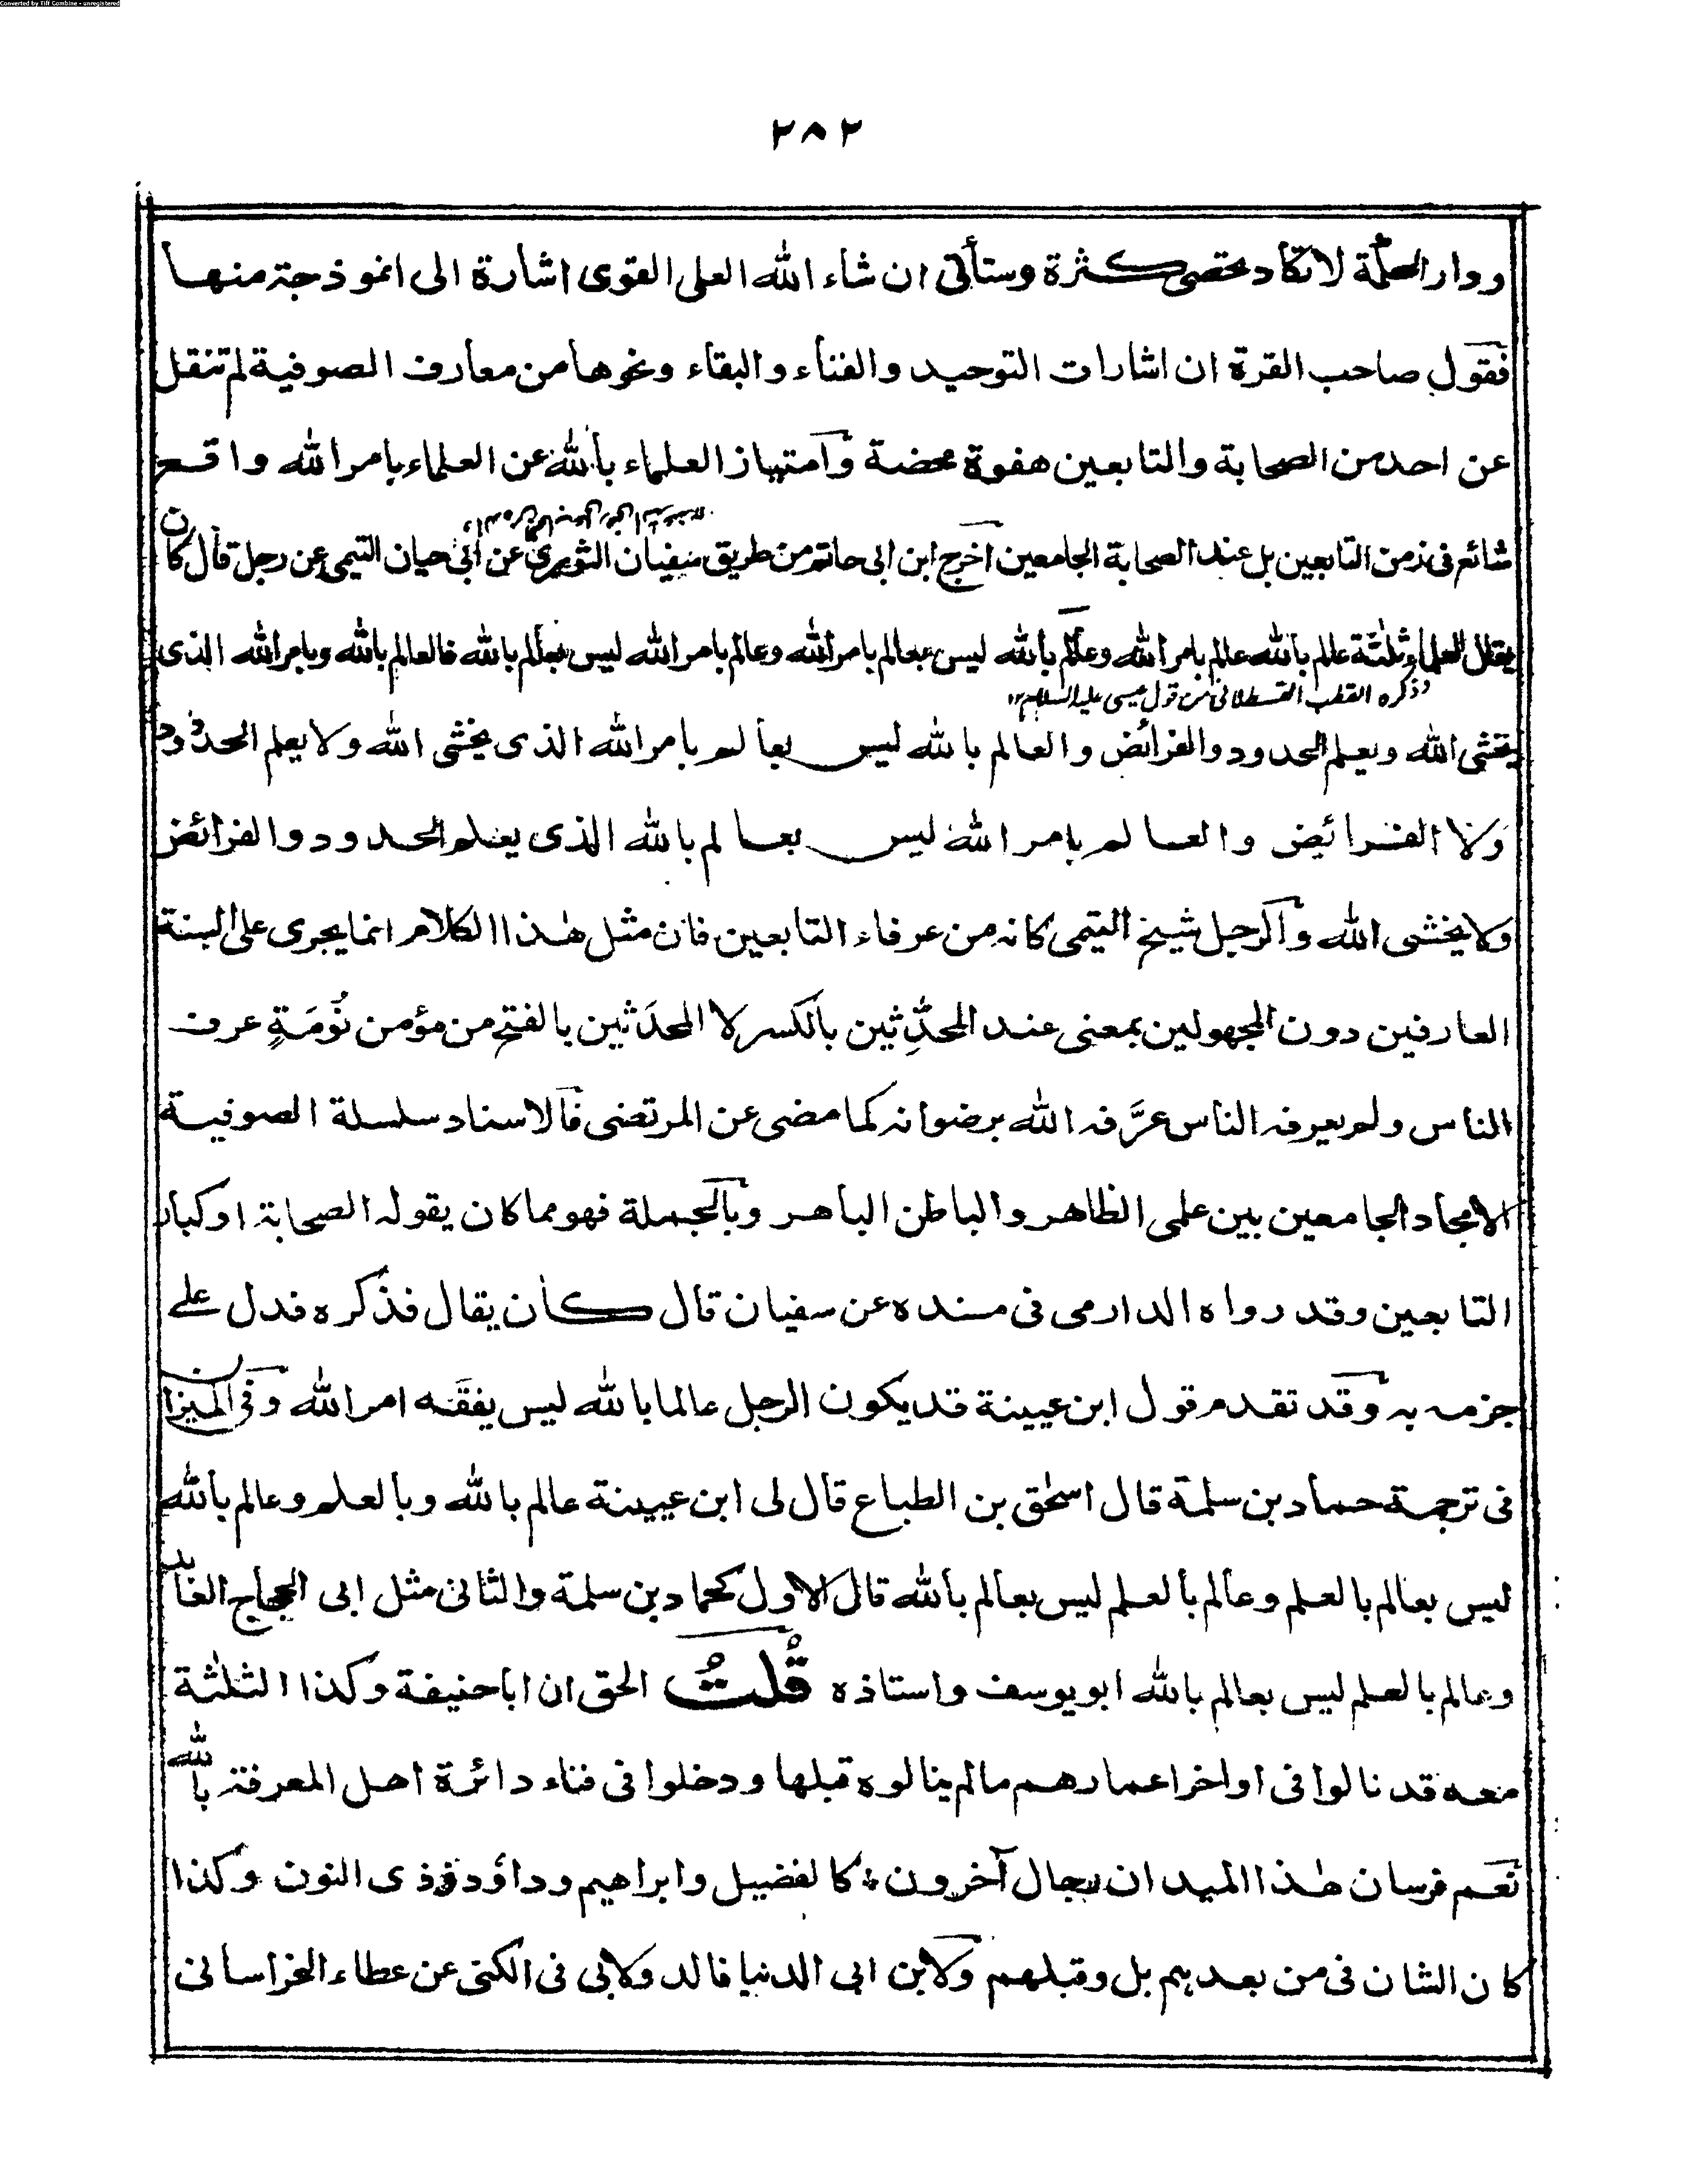 Converted by Tiff Combine - unregistered
٢٨٢
ودار الحكمة لا تكاد تحصى كثرة وستأتى ان شاء الله العلى القوى اشارة الى انموذجة منها
فقول صاحب القرة ان اشارات التوحيد والفناء والبقاء ونحوها من معارف الصوفية لم تنقل
عن احد من الصحابة والتابعين هفوة محضة وامتياز العلماء بالله عن العلماء بامر الله واقع
شائع فى زمن التابعين بل عند الصحابة الجامعين اخرج ابن ابى حاتم من طريق سفيان الثورى عن ابى حيان التيمى عن رجل قال كان
يقال العلماء ثلثة عالم بالله عالم بامر الله وعالم بالله ليس بعالم بامر الله وعالم بامر الله ليس بعالم بالله فالعالم بالله وبامر الله الذى
ذكره القطب القسطلانى من قول عيسى عليه السلام ١٢
يخشى الله ويعلم الحدود والفرائض والعالم بالله ليس بعالم بامر الله الذى يخشى الله ولا يعلم الحدود
ولا الفرائض والعالم بامر الله ليس بعالم بالله الذى يعلم الحدود والفرائض
ولا يخشى الله والرجل شيخ التيمى كانه من عرفاء التابعين فان مثل هٰذا الكلام انما يجرى على السنة
العارفين دون المجهولين بمعنى عند المحدِّثين بالكسر لا المحدَثين بالفتح من مؤمن نُوَمَةٍ عرف
الناس ولم يعرفه الناس عرَّفه الله برضوانه كما مضى عن المرتضى فالاسناد سلسلة الصوفية
الامجاد الجامعين بين علمى الظاهر والباطن الباهر وبالجملة فهو مما كان يقوله الصحابة او كبار
التابعين وقد رواه الدارمى فى مسنده عن سفيان قال كان يقال فذكره فدل على
جزمه به وقد تقدم قول ابن عيينة قد يكون الرجل عالما بالله ليس يفقه امر الله وفى الميزان
فى ترجمة حماد بن سلمة قال اسحٰق بن الطباع قال لى ابن عيينة عالم بالله وبالعلم وعالم بالله
ليس بعالم بالعلم وعالم بالعلم ليس بعالم بالله قال الاول كحماد بن سلمة والثانى مثل ابى الحجاج العابد
وعالم بالعلم ليس بعالم بالله ابو يوسف واستاذه قُلتُ الحق ان اباحنيفة وكذا الثلٰثة
معه قد نالوا فى اواخر اعمارهم ما لم ينالوه قبلها ودخلوا فى فناء دائرة اهل المعرفة بالله
نعم فرسان هٰذا الميدان رجال آخرون؛ كالفضيل وابراهيم وداؤد وذى النون وكذا
كان الشان فى من بعدهم بل وقبلهم ولابن ابى الدنيا فالدولابى فى الكنى عن عطاء الخراسانى